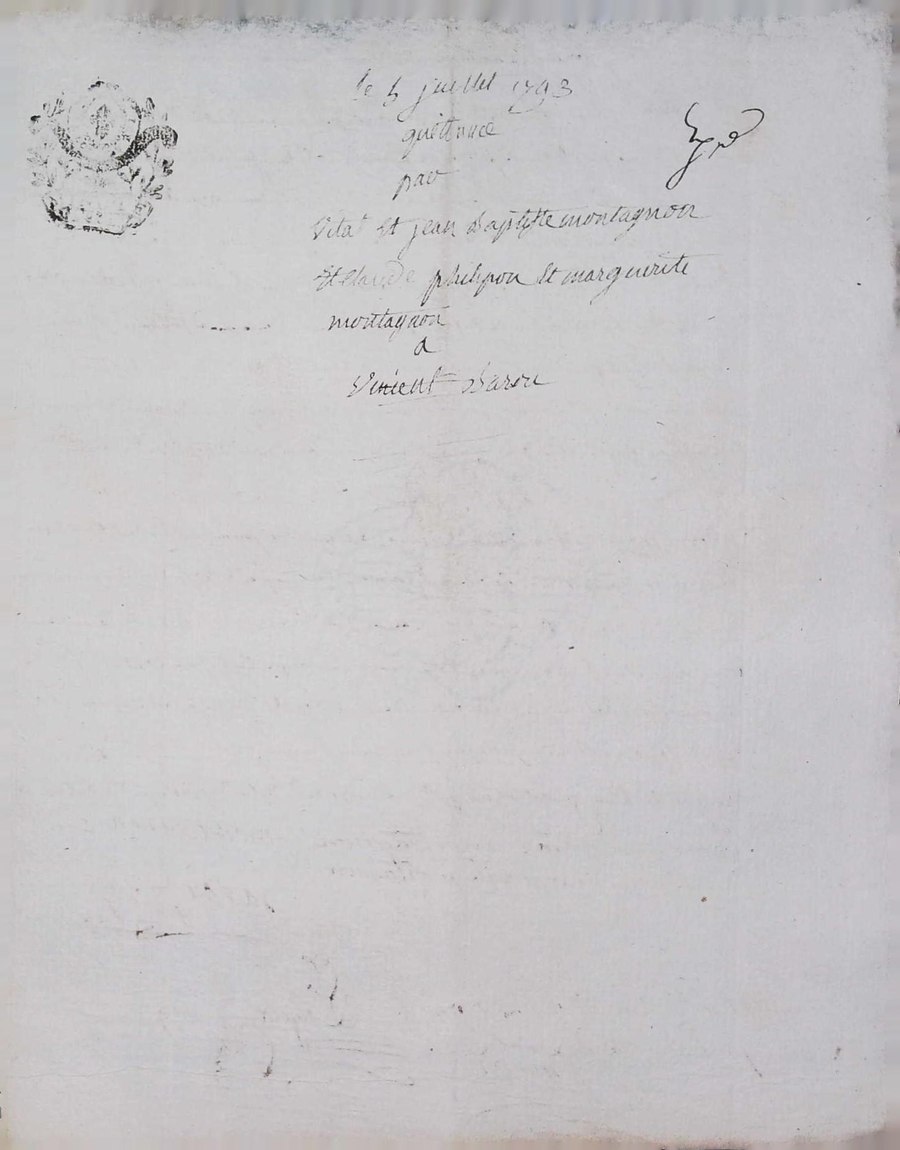 le 5 juillet 1793
quittance
par
Vital Et jean Baptiste montagnon
Et Claude philipon Et marguerite
montagnon
a
Vincent Barou
Expé